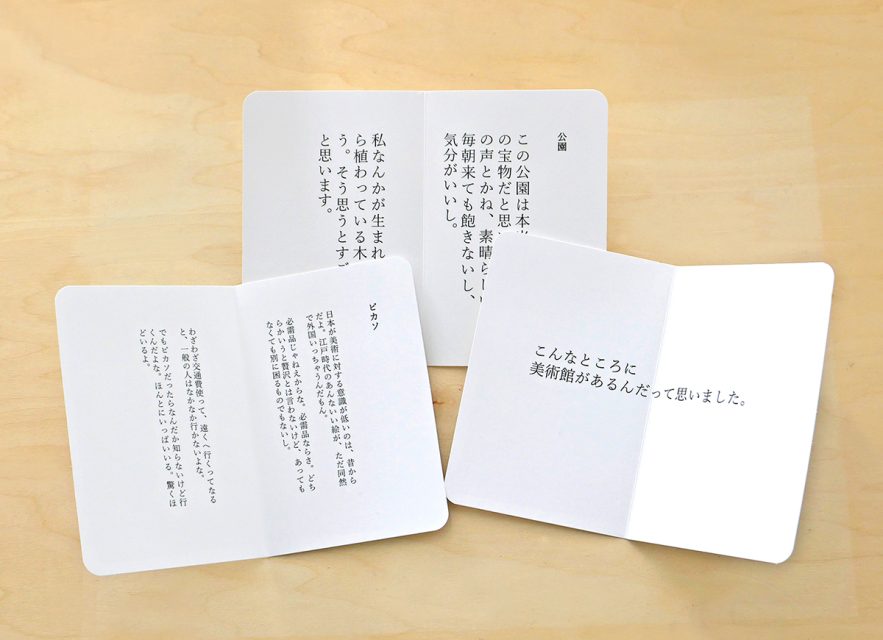 公園
この公園は本
の宝物だと思
の声とかね、素晴らしい
毎朝来ても飽きないし、
気分がいいし。
私なんかが生まれ
ら植わっている木
う。そう思うとすご
と思います。
ピカソ
日本が美術に対する意識が低いのは、昔から
だよ。江戸時代のあんないい絵が、ただ同然
で外国いっちゃうんだもん。
必需品じゃねえからな。必需品ならさ。どち
らかいうと贅沢とは言わないけど、あっても
なくても別に困るものでもないし。
わざわざ交通費使って、遠くへ行くってなる
と、一般の人はなかなか行かないよな。
でもピカソだったらなんだか知らないけど行
くんだよな。ほんとにいっぱいいる。驚くほ
どいるよ。
こんなところに
美術館があるんだって思いました。